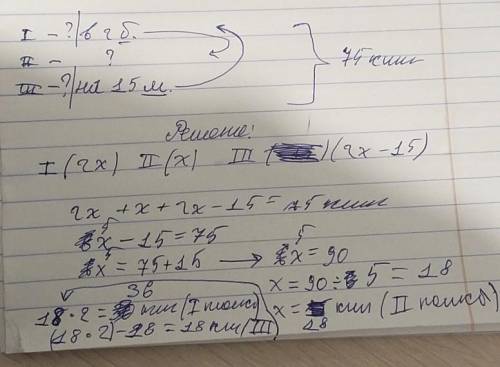 I - ? в 2 б.
II - ?
III - ? на 15 м.
75 книг
Решение:
I (2x) II (x) III (2x - 15)
2x + x + 2x - 15 = 75 книг
5x - 15 = 75
5x = 75 + 15 → 5x = 90
x = 90 : 5 = 18
x = 18 кни (II полка)
18 · 2 = 36 кни (I полка)
(18 · 2) - 18 = 18 кни (III)